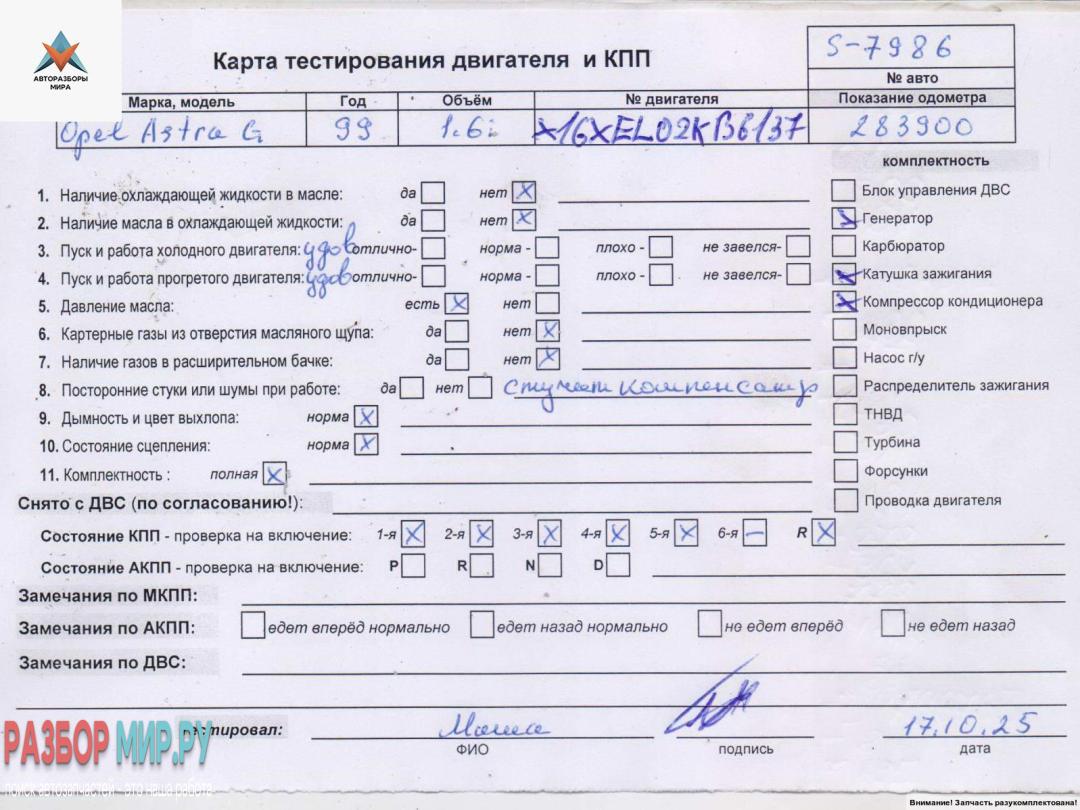 АВТОРАЗБОРЫ
МИРА
Карта тестирования двигателя и КПП
S-7986
№ авто
Марка, модель Год Объём № двигателя Показание одометра
Opel Astra G 99 1.6i x16XEL02KB6137 283900
комплектность
1. Наличие охлаждающей жидкости в масле: да нет X
Блок управления ДВС
2. Наличие масла в охлаждающей жидкости: да нет X
Генератор
3. Пуск и работа холодного двигателя: удов отлично- норма - плохо - не завелся-
Карбюратор
4. Пуск и работа прогретого двигателя: удов отлично- норма - плохо - не завелся-
Катушка зажигания
5. Давление масла: есть X нет
Компрессор кондиционера
6. Картерные газы из отверстия масляного щупа: да нет X
Моновпрыск
7. Наличие газов в расширительном бачке: да нет X
Насос г/у
8. Посторонние стуки или шумы при работе: да нет стучат компенсатр
Распределитель зажигания
9. Дымность и цвет выхлопа: норма X
ТНВД
10. Состояние сцепления: норма X
Турбина
11. Комплектность : полная X
Форсунки
Снято с ДВС (по согласованию!):
Проводка двигателя
Состояние КПП - проверка на включение: 1-я X 2-я X 3-я X 4-я X 5-я X 6-я – R X
Состояние АКПП - проверка на включение: P R N D
Замечания по МКПП:
Замечания по АКПП: едет вперёд нормально едет назад нормально не едет вперёд не едет назад
Замечания по ДВС:
тестировал: 17.10.25
ФИО подпись дата
РАЗБОР МИР.РУ
поиск автозапчастей - это наша работа
Внимание! Запчасть разукомплектована!